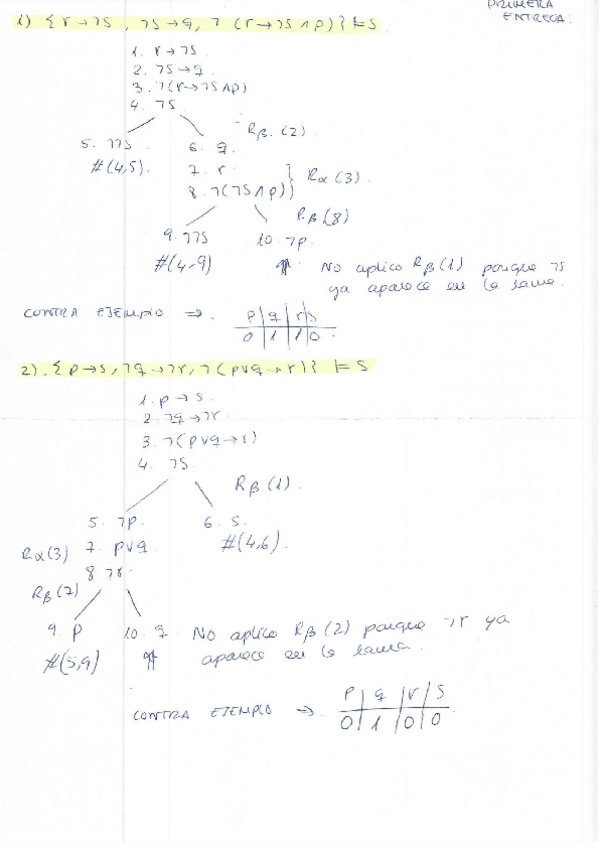 PRIMERA
ENTREGA:
1) {r→¬s, ¬s→q, ¬(r→¬s∧p)} ⊨ s
1. r→¬s
2. ¬s→q
3. ¬(r→¬s∧p)
4. ¬s
Rβ (2)
5. ¬¬s 6. q
#(4,5). 7. r } Rα (3)
8. ¬(¬s∧p)
Rβ (8)
9. ¬¬s 10. ¬p
#(4,9) No aplico Rβ(1) porque ¬s
ya aparece en la rama.
CONTRA EJEMPLO ⇒ p | q | r | s
0 | 1 | 1 | 0
2). {p→s, ¬q→¬r, ¬(p∨q→r)} ⊨ s
1. p→s.
2. ¬q→¬r.
3. ¬(p∨q→r)
4. ¬s.
Rβ (1).
5. ¬p. 6. s.
Rα(3) 7. p∨q. #(4,6).
8 ¬r.
Rβ (7)
9. p 10. q. No aplico Rβ(2) porque ¬r ya
#(5,9) aparece en la rama.
CONTRA EJEMPLO ⇒ p | q | r | s
0 | 1 | 0 | 0